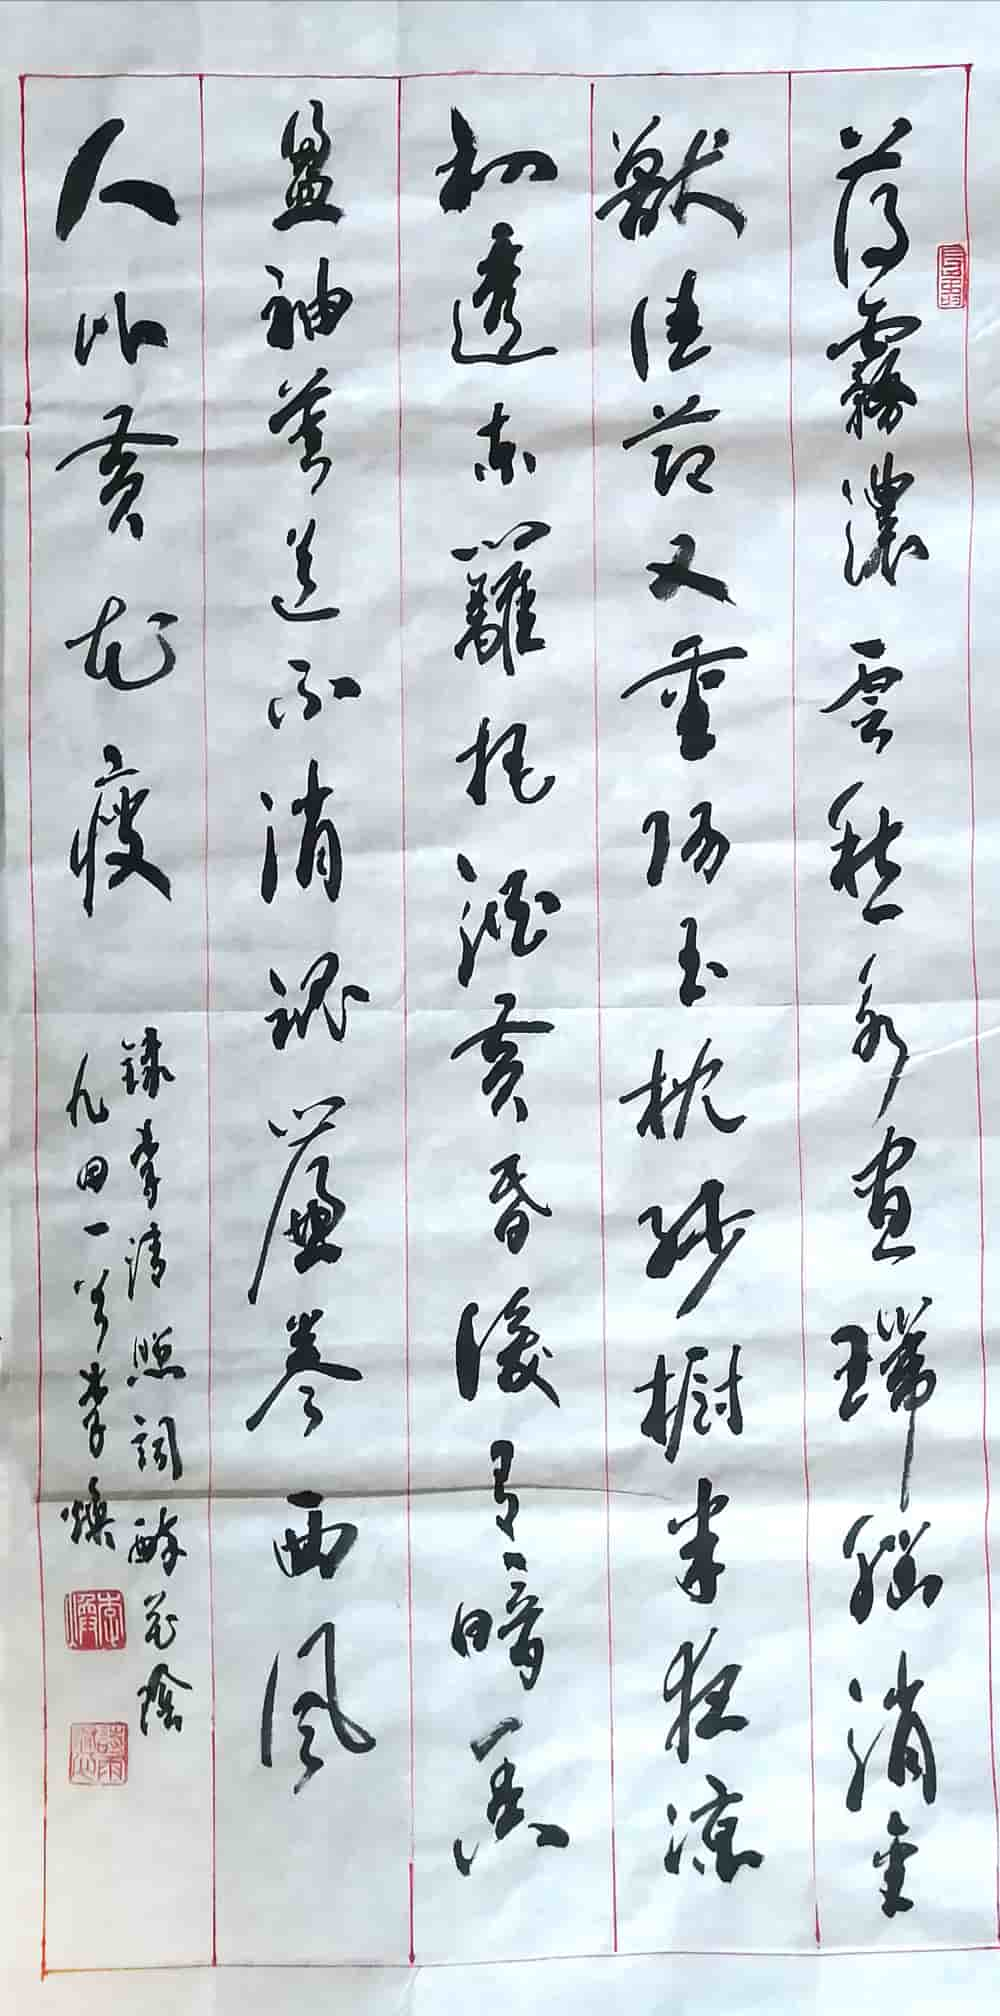 薄霧濃雲愁永晝瑞腦消金
獸佳節又重陽玉枕紗橱半夜凉
初透東籬把酒黄昏後有暗香
盈袖莫道不消魂簾卷西風
人比黄花瘦
録李清照詞醉花陰
九四一 李焕
李焕